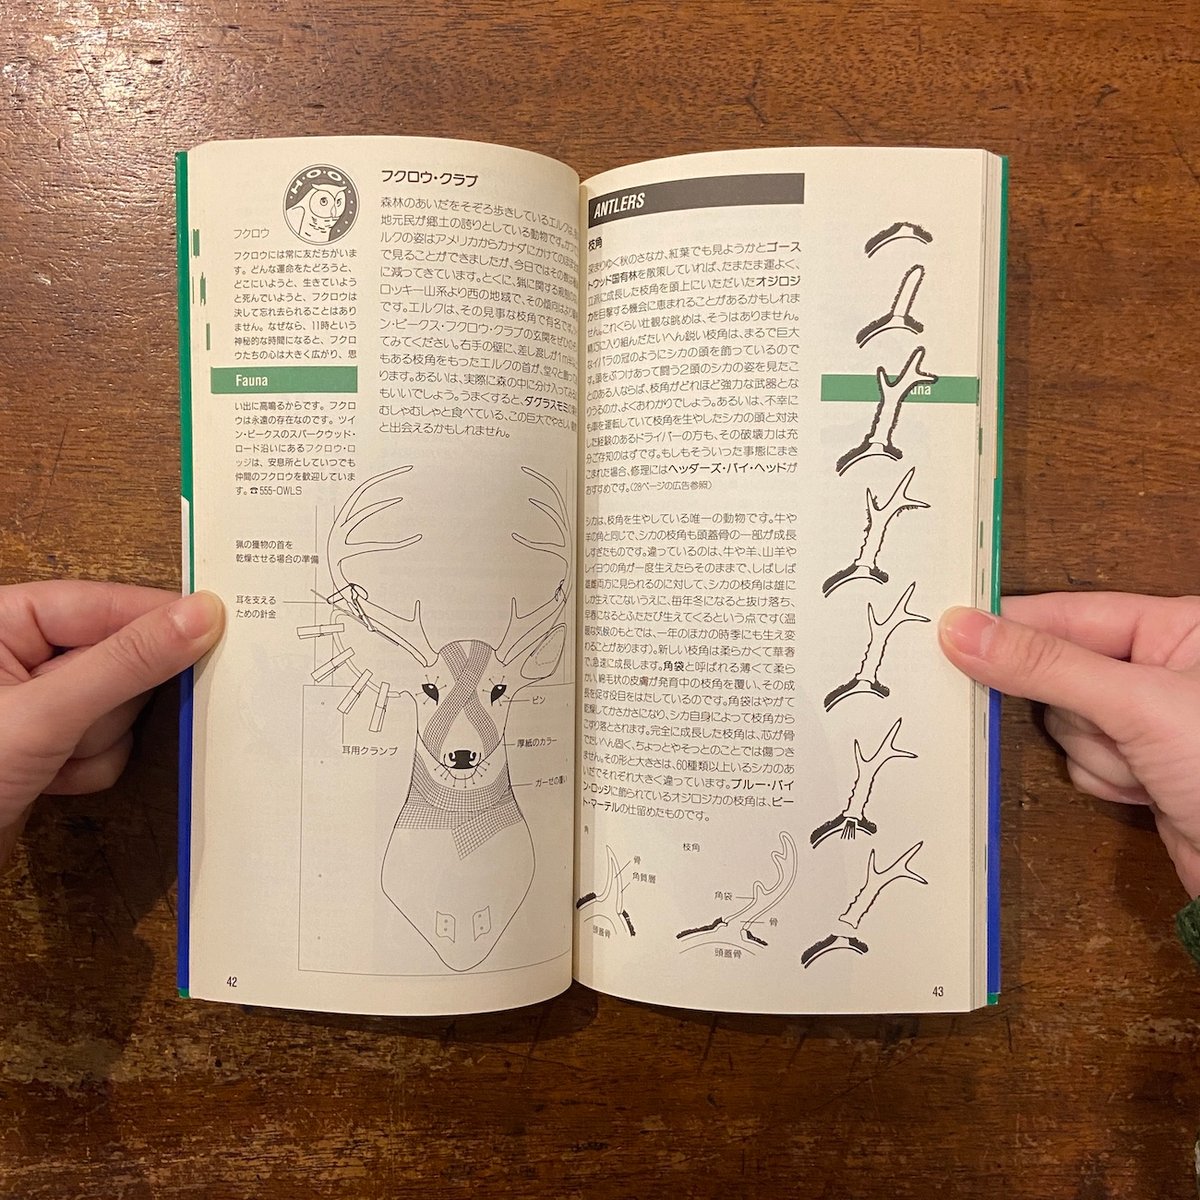 H・O・O
フクロウ
フクロウには常に友だちがいま
す。どんな運命をたどろうと、
どこにいようと、生きていよう
と死んでいようと、フクロウは
決して忘れ去られることはあり
ません。なぜなら、11時という
神秘的な時間になると、フクロ
ウたちの心は大きく広がり、思
Fauna
い出に高鳴るからです。フクロ
ウは永遠の存在なのです。ツイ
ン・ピークスのスパークウッド・
ロード沿いにあるフクロウ・ロ
ッジは、安息所としていつでも
仲間のフクロウを歓迎していま
す。☎555-OWLS
フクロウ・クラブ
森林のあいだをそぞろ歩きしているエルクは、
地元民が郷土の誇りとしている動物です。かつて
ルクの姿はアメリカからカナダにかけての
で見ることができましたが、今日ではその数は
に減ってきています。とくに、猟に関する
ロッキー山系より西の地域で、その傾向は
です。エルクは、その見事な枝角で有名です。
ン・ピークス・フクロウ・クラブの玄関をぜひ
てみてください。右手の壁に、差し渡しが1m
もある枝角をもったエルクの首が、堂々と飾って
ります。あるいは、実際に森の中に分け入ってみ
もいいでしょう。うまくすると、ダグラスモミの
むしゃむしゃと食べている、この巨大でやさしい
と出会えるかもしれません。
猟の獲物の首を
乾燥させる場合の準備
耳を支える
ための針金
耳用クランプ
ピン
厚紙のカラー
ガーゼの覆い
42
ANTLERS
枝角
深まりゆく秋のさなか、紅葉でも見ようかとゴース
トウッド国有林を散策していれば、たまたま運よく、
立派に成長した枝角を頭上にいただいたオジロジ
カを目撃する機会に恵まれることがあるかもしれま
せん。これくらい壮観な眺めは、そうはありません。
精巧に入り組んだたいへん鋭い枝角は、まるで巨大
なイバラの冠のようにシカの頭を飾っているので
す。頭をぶつけあって闘う2頭のシカの姿を見たこ
とのある人ならば、枝角がどれほど強力な武器とな
りうるのか、よくおわかりでしょう。あるいは、不幸に
も車を運転していて枝角を生やしたシカの頭と対決
した経験のあるドライバーの方も、その破壊力は充
分ご存知のはずです。もしもそういった事態にまき
こまれた場合、修理にはヘッダーズ・バイ・ヘッドが
おすすめです。(28ページの広告参照)
シカは、枝角を生やしている唯一の動物です。牛や
羊の角と同じで、シカの枝角も頭蓋骨の一部が成長
しすぎたものです。違っているのは、牛や羊、山羊や
レイヨウの角が一度生えたらそのままで、しばしば
雌雄両方に見られるのに対して、シカの枝角は雄に
しか生えてこないうえに、毎年冬になると抜け落ち、
早春になるとふたたび生えてくるという点です(温
暖な気候のもとでは、一年のほかの時季にも生え変
わることがあります)。新しい枝角は柔らかくて華奢
で、急速に成長します。角袋と呼ばれる薄くて柔ら
かい、綿毛状の皮膚が発育中の枝角を覆い、その成
長を促す役目をはたしているのです。角袋はやがて
乾燥してかさかさになり、シカ自身によって枝角から
こすり落とされます。完全に成長した枝角は、芯が骨
でたいへん固く、ちょっとやそっとのことでは傷つき
ません。その形と大きさは、60種類以上いるシカのあ
いだでそれぞれ大きく違っています。ブルー・パイ
ン・ロッジに飾られているオジロジカの枝角は、ピー
ト・マーテルの仕留めたものです。
una
角
骨
角質層
頭蓋骨
枝角
角袋
骨
頭蓋骨
43